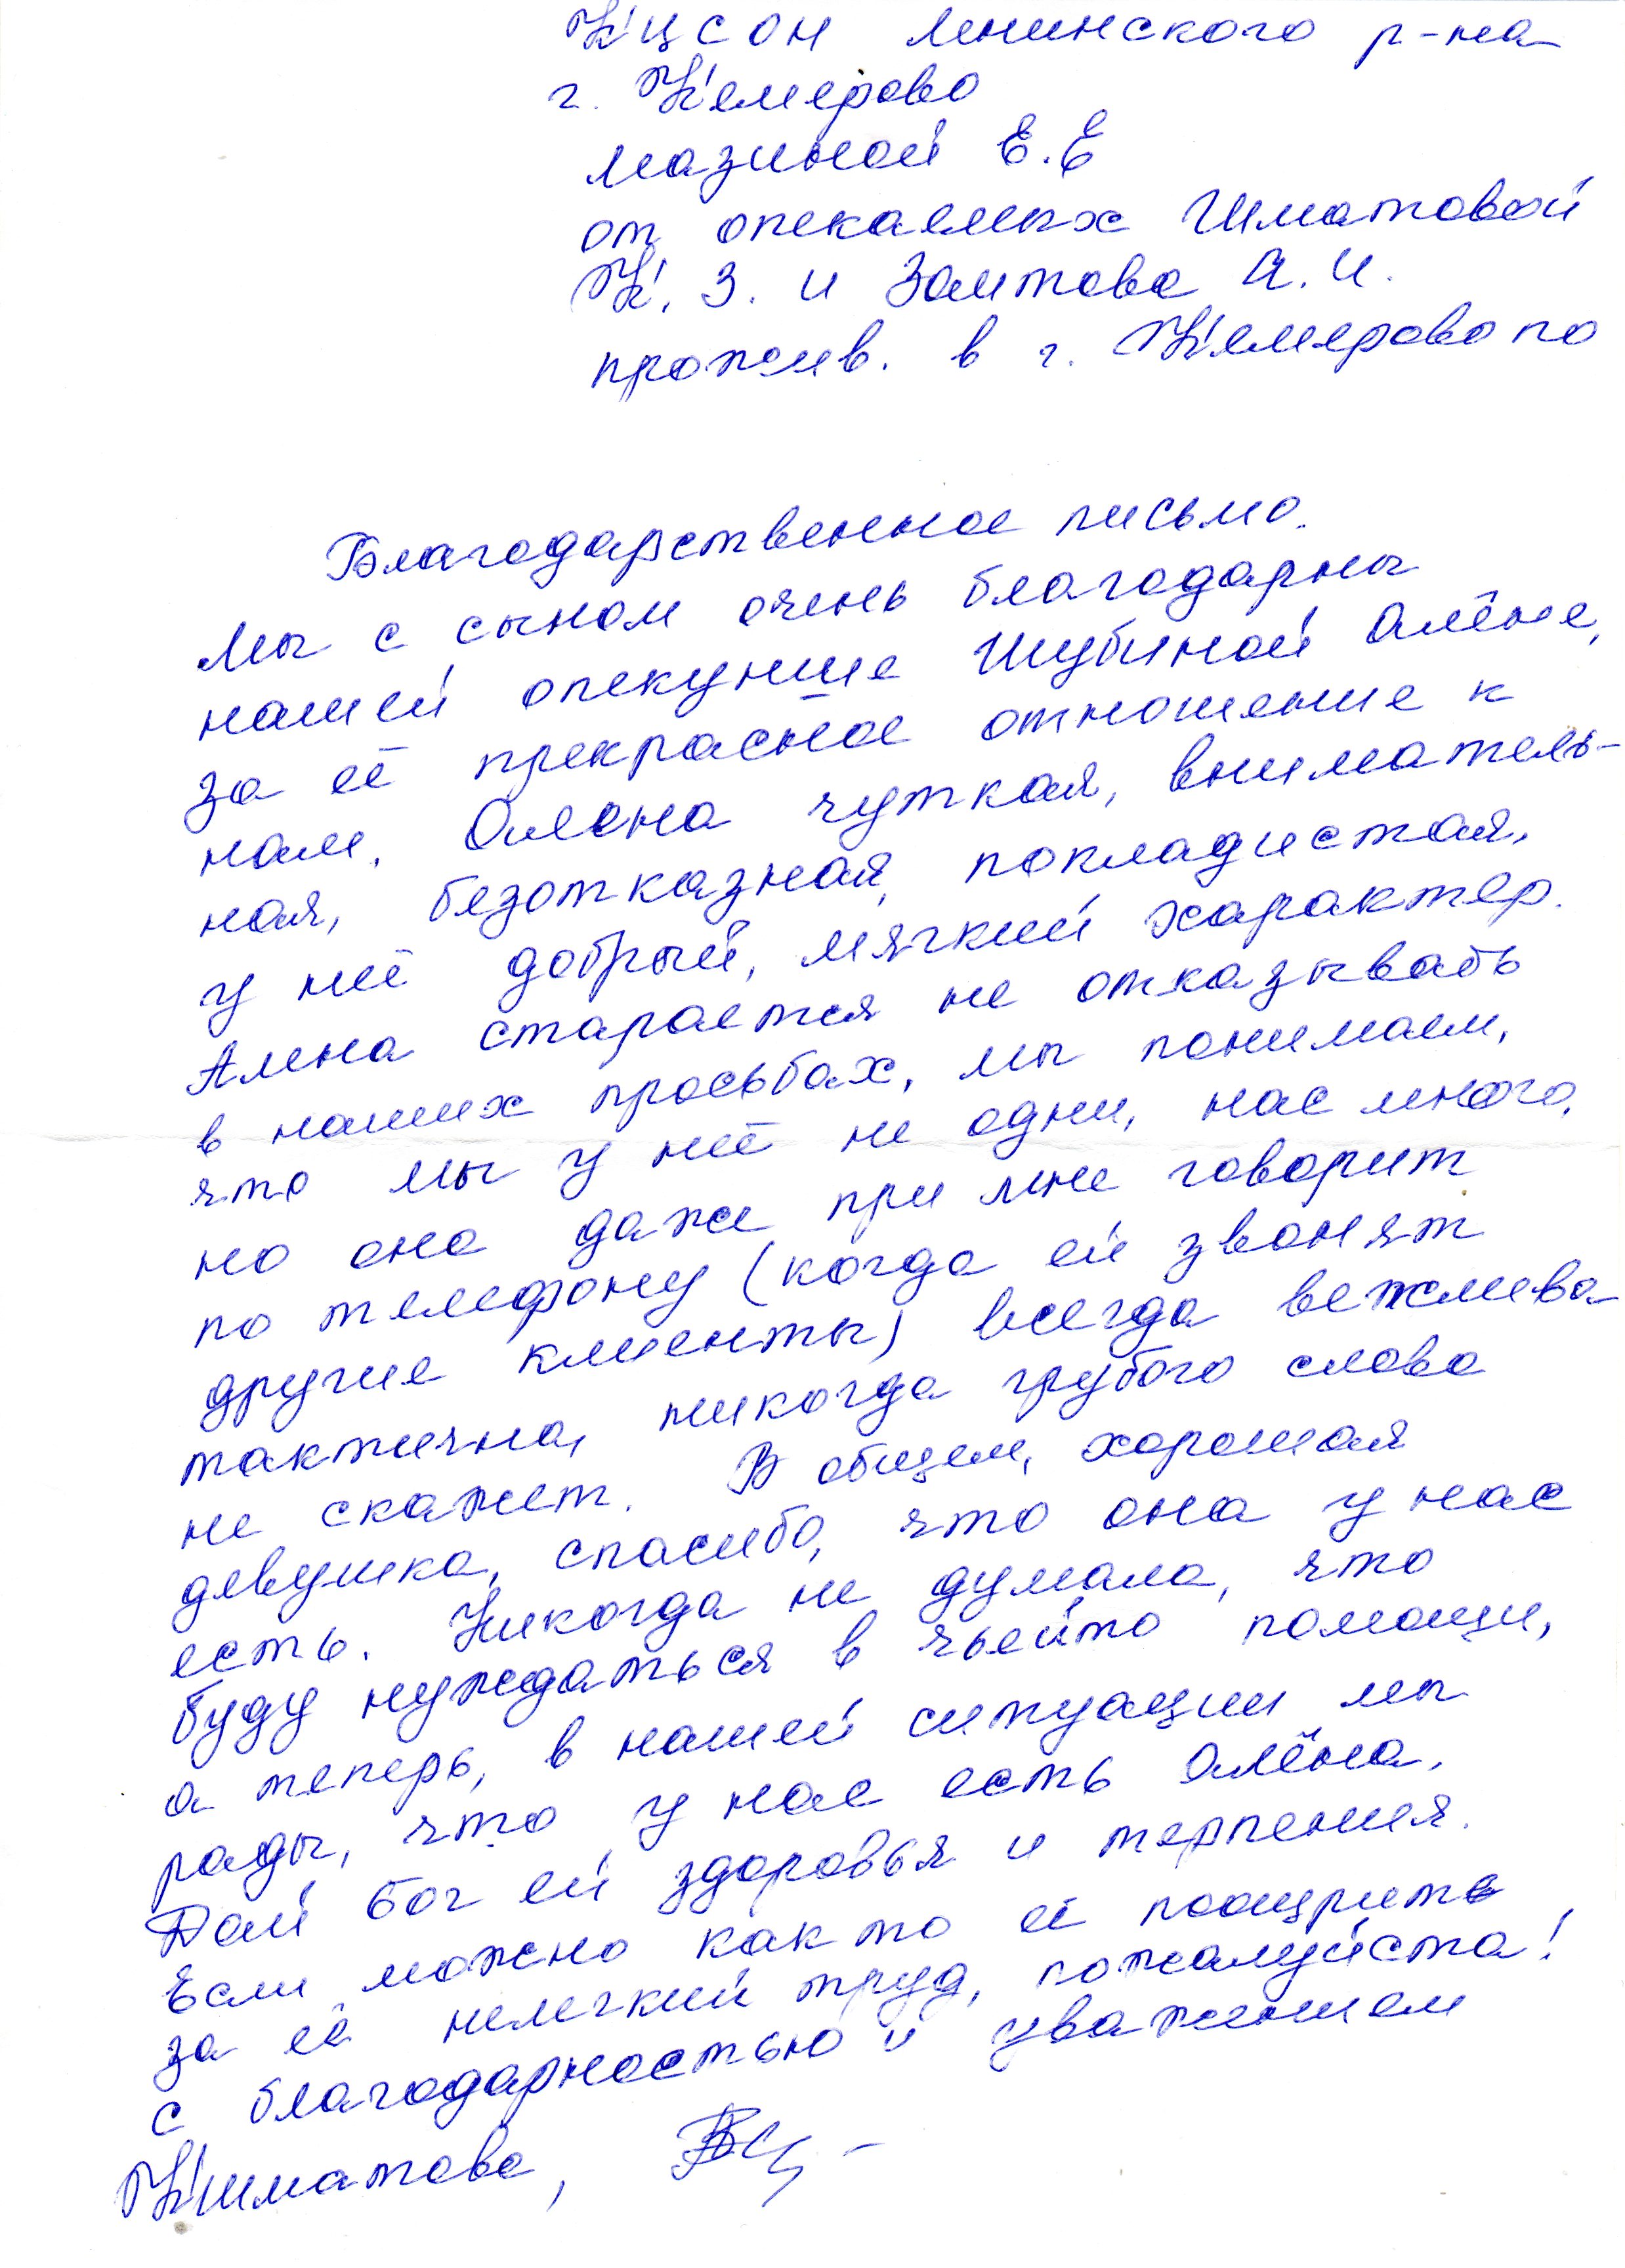 КЦСОН Ленинского р-на
г. Кемерово
Мазиной Е.Е
от опекаемых Шматовой
К. З. и Заитова А. И.
прожив. в г. Кемерово по
Благодарственное письмо.
Мы с сыном очень благодарны
нашей опекунше Шубиной Алёне,
за её прекрасное отношение к
нам. Алена чуткая, вниматель-
ная, безотказная, покладистая,
у неё добрый, мягкий характер.
Алена старается не отказывать
в наших просьбах, мы понимаем,
что мы у неё не одни, нас много,
но она даже при мне говорит
по телефону (когда ей звонят
другие клиенты) всегда вежлива
тактична, никогда грубого слова
не скажет. В общем, хорошая
девушка, спасибо, что она у нас
есть. Никогда не думала, что
буду нуждаться в чьейто помощи,
а теперь, в нашей ситуации мы
рады, что у нас есть Алёна.
Дай Бог ей здоровья и терпения.
Если можно както её поощрить
за её нелегкий труд, пожалуйста!
С благодарностью и уважением